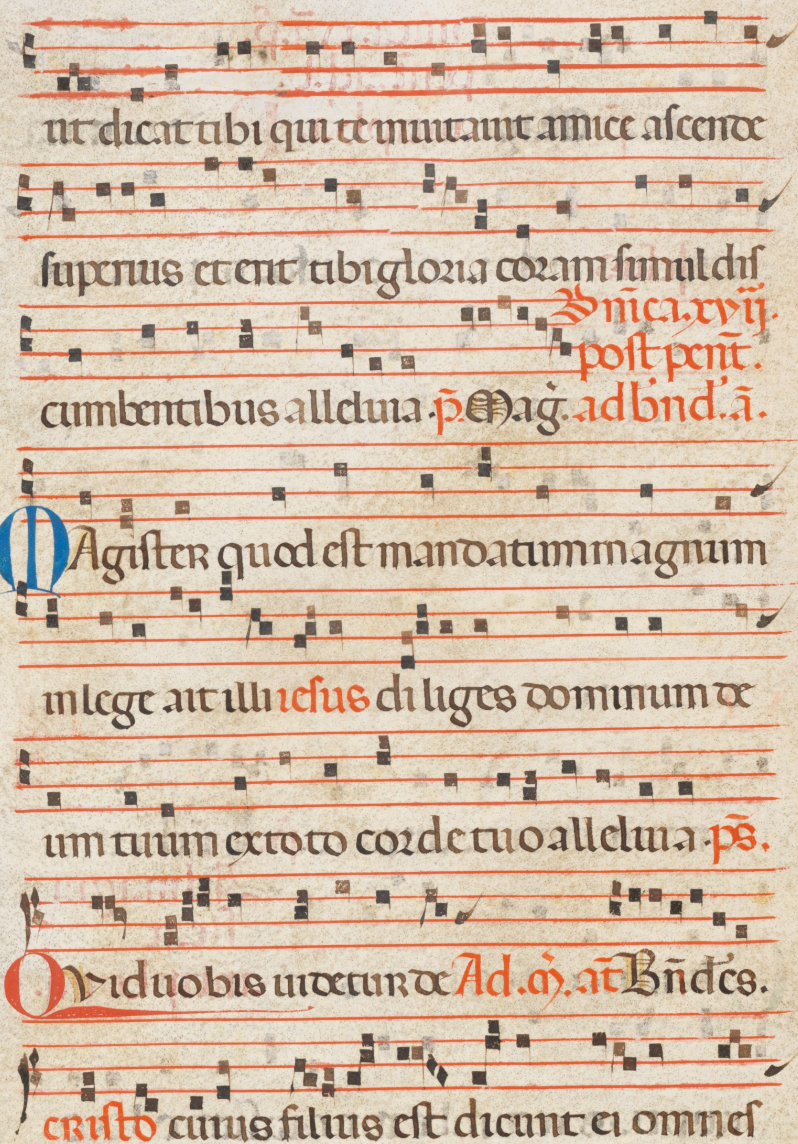 ut dicat tibi qui te inuitauit amice ascende
superius et erit tibi gloria coram simul dis
Dn̄ica. xvıj.
post pent̄.
cumbentibus alleluia . p̄. Mag̉. ad b̄nd'. ā.
MAgister quod est mandatum magnum
in lege ait illi iesus diliges dominum de
um tuum ex toto corde tuo alleluia . p̄s.
QVid uobis uidetur de Ad. m̉. at̄ Bn̄dc̄s.
cristo cuius filius est dicunt ei omnes